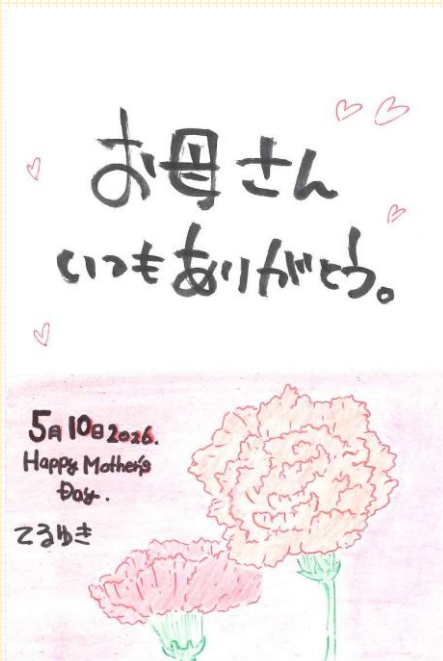 お母さん
いつもありがとう。
5月10日2026.
Happy Mother's
Day.
てるゆき